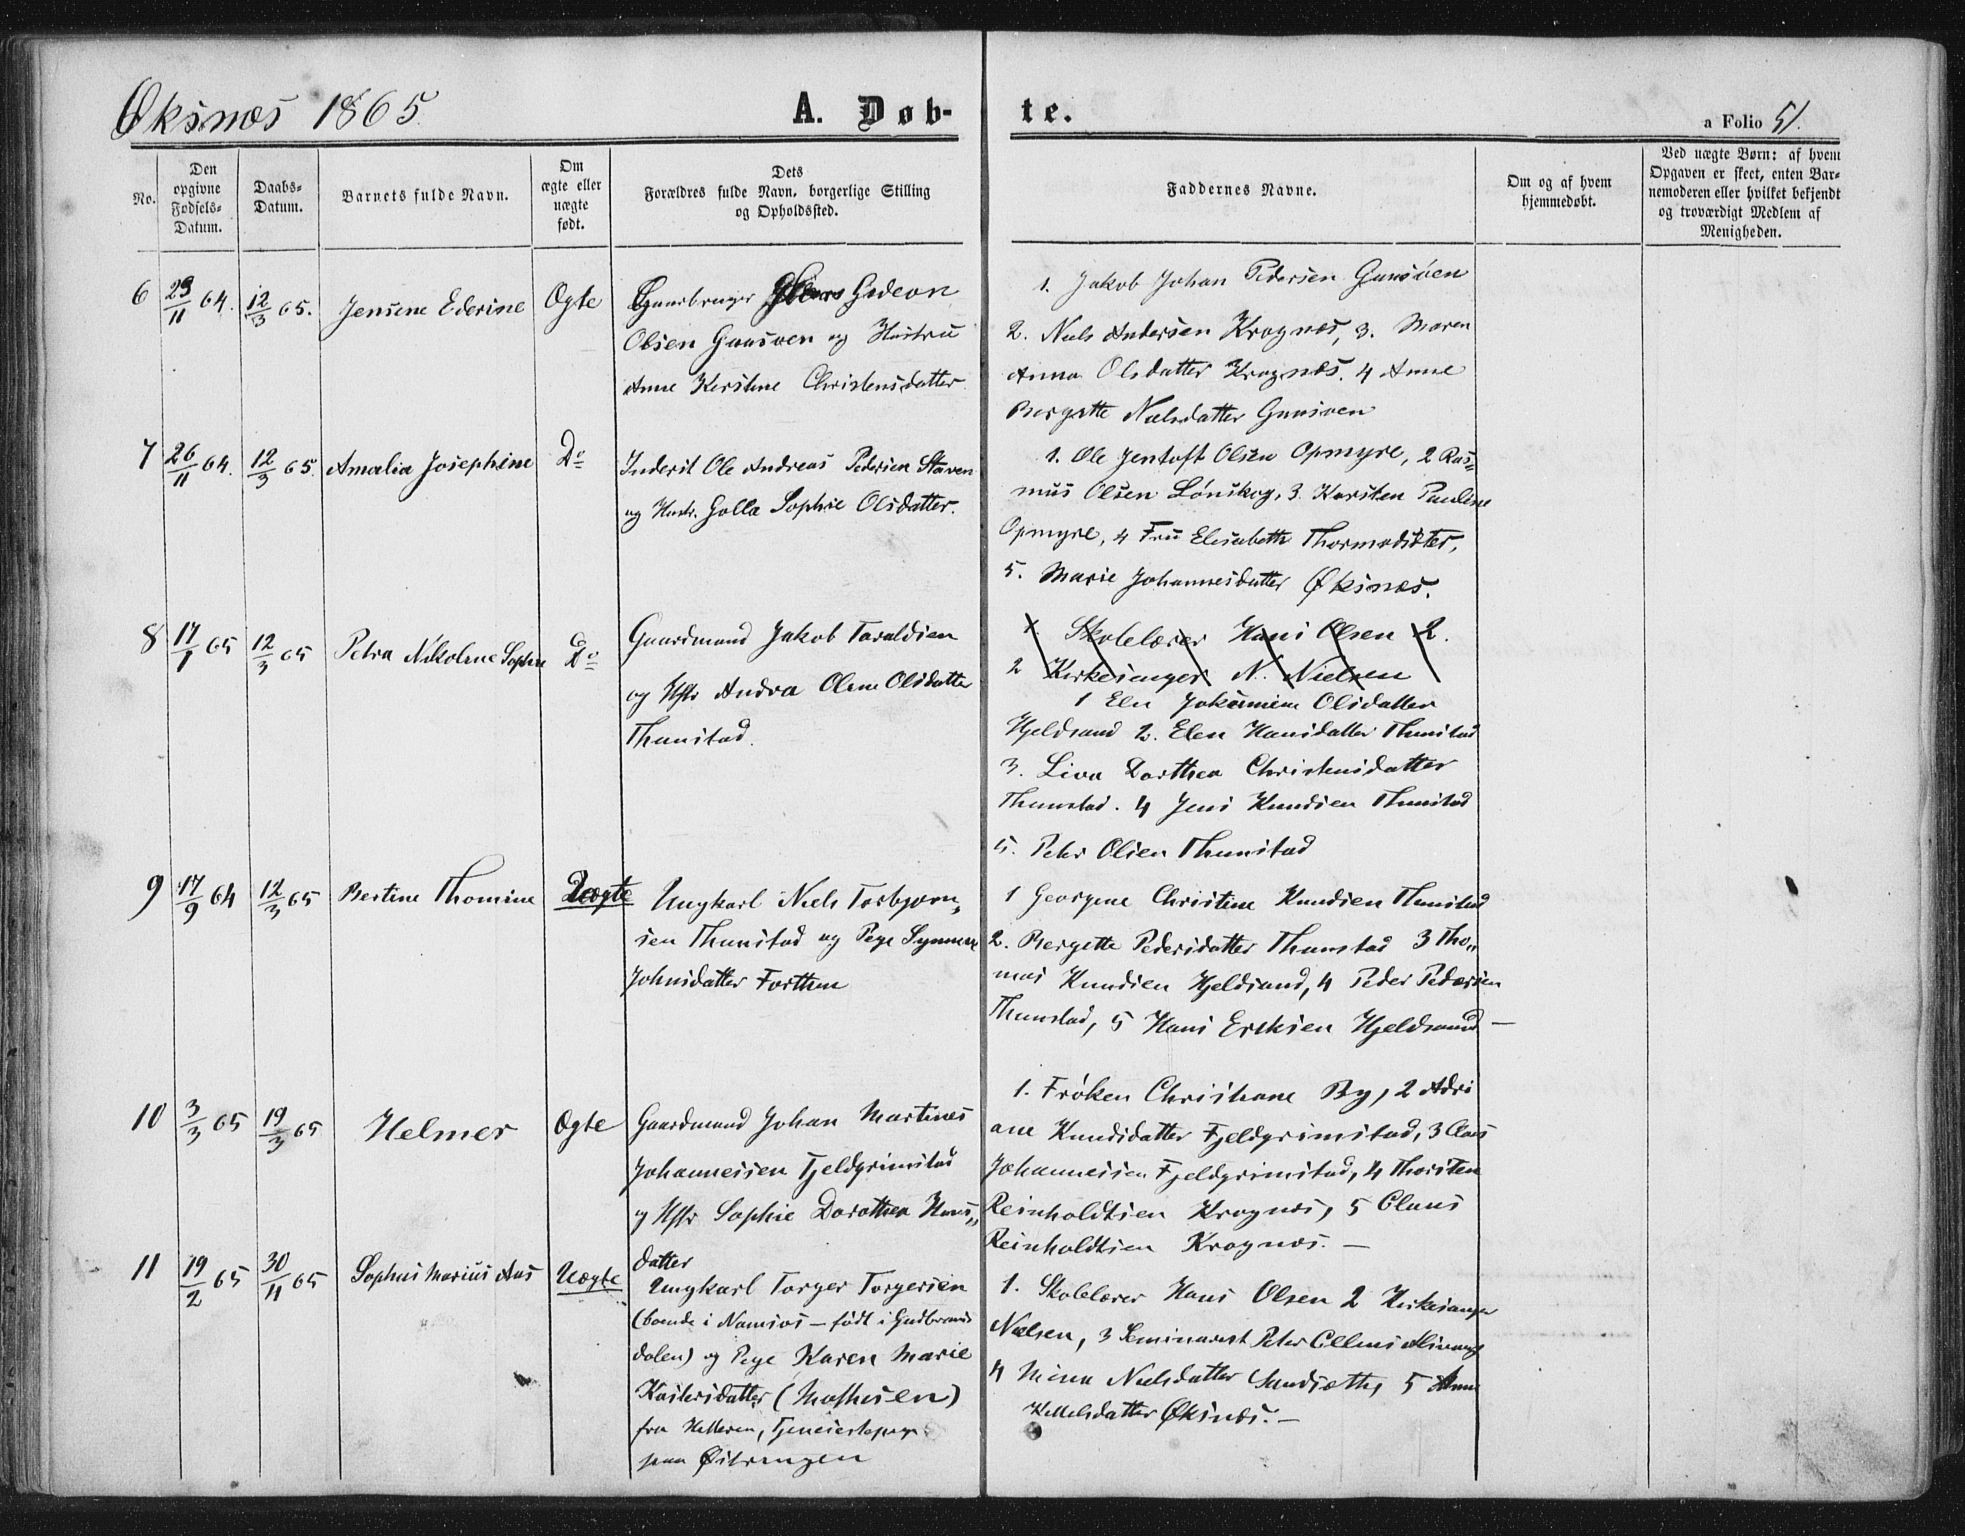 Øksnæs 1865
A. Døb-
te.
a Folio 51.
No.
Den
opgivne
Fødsels-
Datum.
Daabs-
Datum.
Barnets fulde Navn.
Om
ægte eller
uægte
født.
Dets
Forældres fulde Navn, borgerlige Stilling
og Opholdssted.
Faddernes Navne.
Om og af hvem
hjemmedøbt.
Ved uægte Børn: af hvem
Opgaven er skeet, enten Bar-
nemoderen eller hvilket bekjendt
og troværdigt Medlem af
Menigheden.
6 23/11 64. 12/3 65. Jensine Ederine Ægte
Gaardbruger Gedeon
Olsen Gaasøen og Hustru
Anne Kirstine Christensdatter
1. Jakob Johan Pedersen Gaasøen
2. Niels Andersen Kragnæs, 3. Maren
Anna Olsdatter Kragnæs. 4 Anne
Bergitte Nielsdatter Gaasøen
7 26/11 64. 12/3 65. Amalia Josephine Do
Inderst Ole Andreas Pedersen Staven
og Hustr. Golla Sophie Olsdatter.
1. Ole Jentoft Olsen Opmyre, 2 Ras=
mus Olsen Lønskog, 3. Karsten Pauline
Opmyre, 4 Fru Elisabeth Thormodsæter,
5. Marie Johannesdatter Øksnæs.
8 17/1 65 12/3 65 Petra Nikoline Sophie Do
Gaardmand Jakob Taraldsen
og Hstr Andrea Oline Olsdatter
Thunstad.
1. Skolelærer Hans Olsen 2.
2 Kirkesanger N. Nielsen
1 Elen Jakobmine Olsdatter
Hjeldsand 2. Elen Hansdatter Thunstad
3. Liva Dorthea Christensdatter
Thunstad. 4 Jens Knudsen Thunstad
5. Peter Olsen Thunstad
9 17/9 64 12/3 65 Bertine Thomine Uægte
Ungkarl Niels Torbjørn„
sen Thunstad og Pige Synnøve
Johnsdatter Forthun
1 Georgine Christine Knudsen Thunstad
2. Bergitte Pedersdatter Thunstad 3 Tho„
mas Knudsen Hjeldsand, 4 Peder Pedersen
Thunstad, 5 Hans Eriksen Hjeldsand —
10 3/3 65 19/3 65 Helmer Ægte
Gaardmand Johan Martines
Johannessen Fjeldgrimstad
og Hstr Sophie Dorothea Hans„
datter
1. Frøken Christiane By, 2 Adri
ane Knudsdatter Fjeldgrimstad, 3 Claus
Johannessen Fjeldgrimstad, 4 Thorsten
Reinholdtsen Kragnæs, 5 Claus
Reinholdtsen Kragnæs. —
11 19/2 65 30/4 65 Sophus Marius Aas Uægte
Ungkarl Torger Torgersen
(boende i Namsos — født i Gudbrands
dalen) og Pige Karen Marie
Kastersdatter (Mathisen)
fra Helleren, Tjenestepige
paa Østvangen
1. Skolelærer Hans Olsen 2 Kirkesanger
Nielsen, 3 Seminarist Peter Ellens
4 Mina Nielsdatter Sandsæth, 5 Anne
Kittelsdatter Øksnæs. —